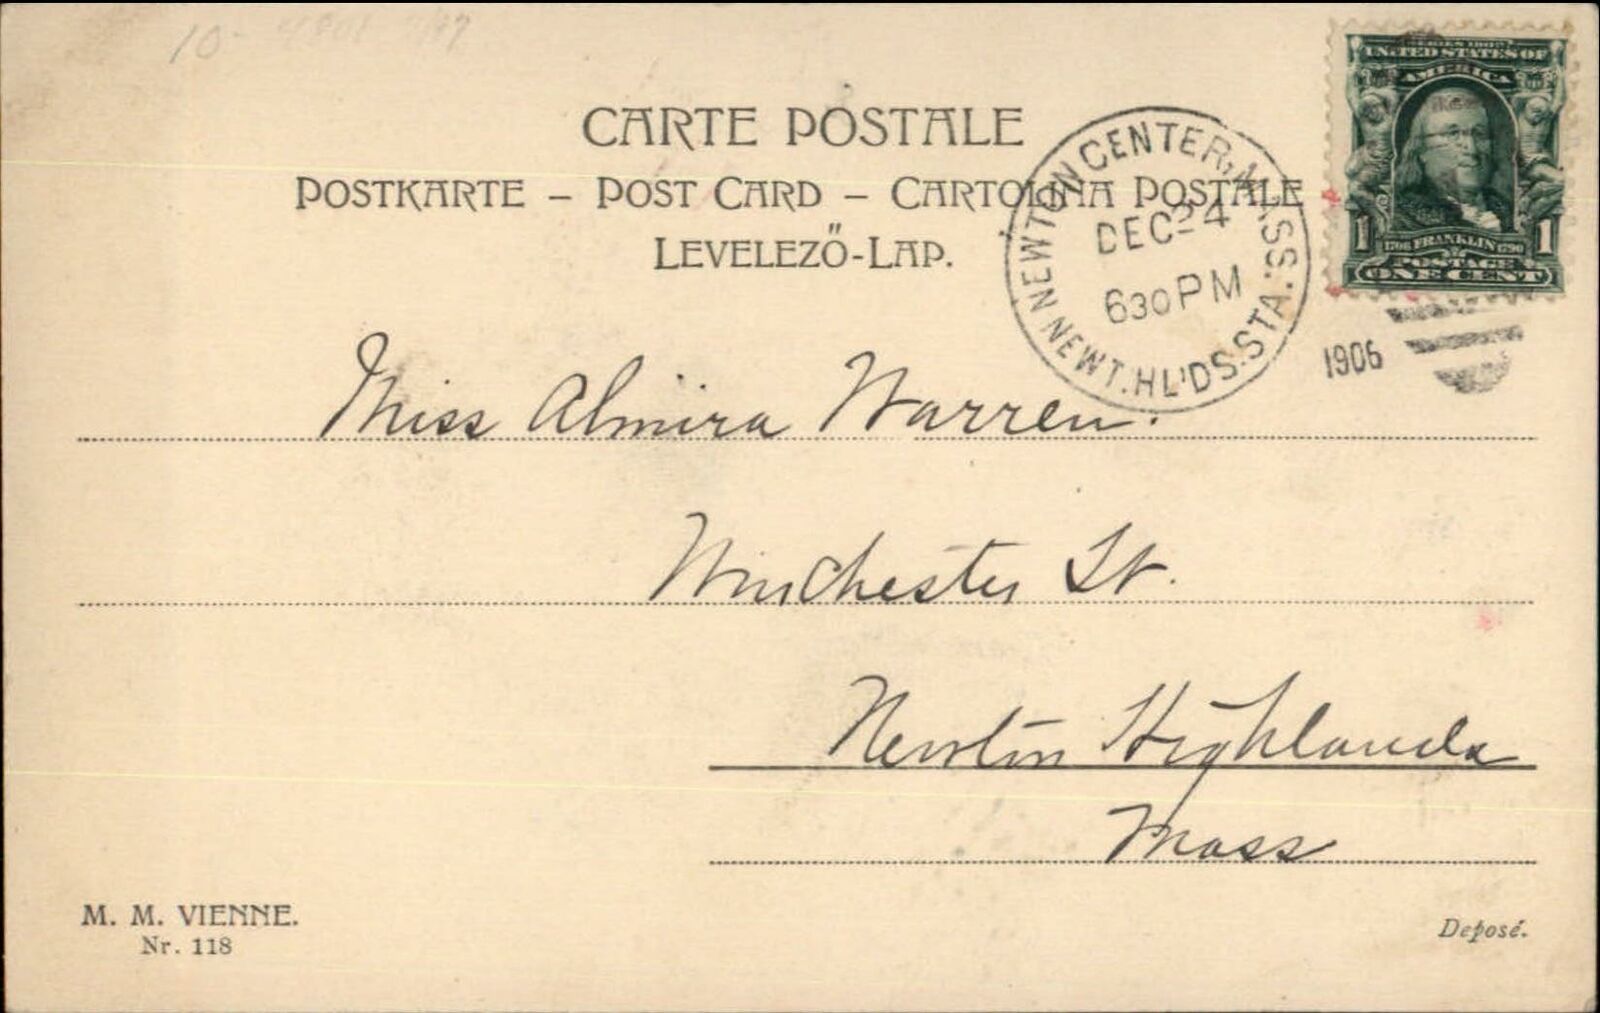 CARTE POSTALE
POSTKARTE – POST CARD – CARTOLINA POSTALE
LEVELEZŐ-LAP.
NEWTON CENTER, MASS.
DEC 24
630 PM
NEWT. HL'DS. STA.
1906
SERIES 1902
UNITED STATES OF
AMERICA
1 1706 FRANKLIN 1790 1
POSTAGE
ONE CENT
Miss Almira Warren.
Winchester St.
Newton Highlands
Mass
M. M. VIENNE.
Nr. 118
Deposé.